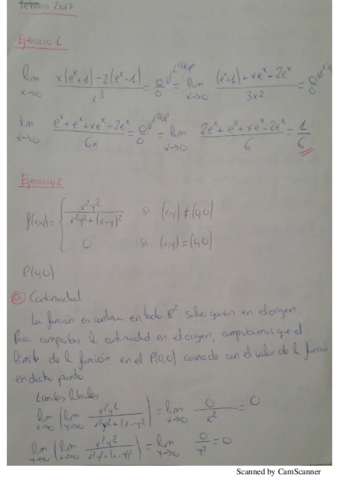 Febrero 2017
Ejercicio 1
lim x→0 x(e^x+1)-2(e^x-1) / x^3 = 0/0 = lim x→0 (e^x+1)+xe^x-2e^x / 3x^2 = 0/0
lim x→0 e^x+e^x+xe^x-2e^x / 6x = 0/0 = lim x→0 2e^x+e^x+xe^x-2e^x / 6 = 1/6
Ejercicio 2
f(x,y) = { x^2y^2 / x^2y^2+(x-y)^2 si (x,y)≠(0,0)
0 si (x,y)=(0,0)
P(0,0)
a) Continuidad
La función es continua en todo R^2 salvo quizás en el origen.
Para comprobar la continuidad en el origen, comprobamos que el
límite de la función en el P(0,0) coincide con el valor de la función
en dicho punto.
Límites
lim x→0 ( lim y→0 x^2y^2 / x^2y^2+(x-y)^2 ) = lim x→0 0/x^2 = 0
lim y→0 ( lim x→0 x^2y^2 / x^2y^2+(x-y)^2 ) = lim y→0 0/y^2 = 0
Scanned by CamScanner